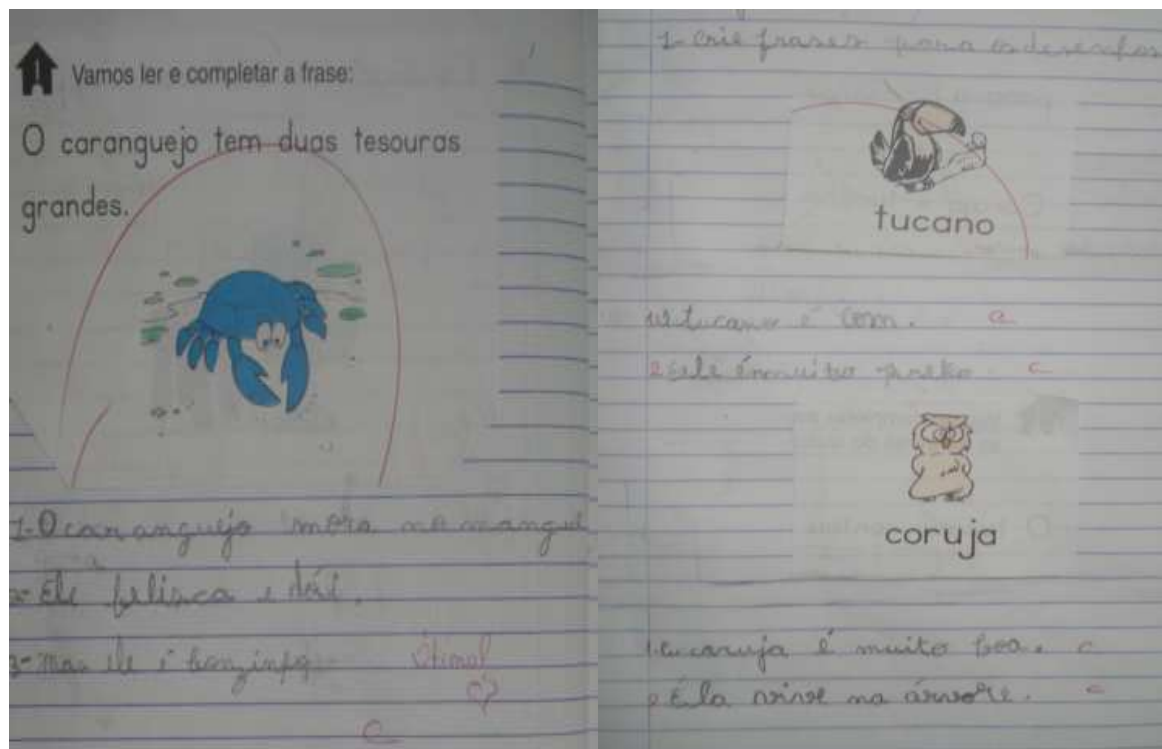 1 Vamos ler e completar a frase:
O caranguejo tem duas tesouras
grandes.
1-O caranguejo mora no mangue
2-Ele belisca e dói.
3-mas ele é bonzinho
Ótimo!
C
1-Crie frases para os desenhos
tucano
tucano é bom. C
2 ele é muito preto C
coruja
1. a coruja é muito boa. C
2 Éla vive na árvore. C